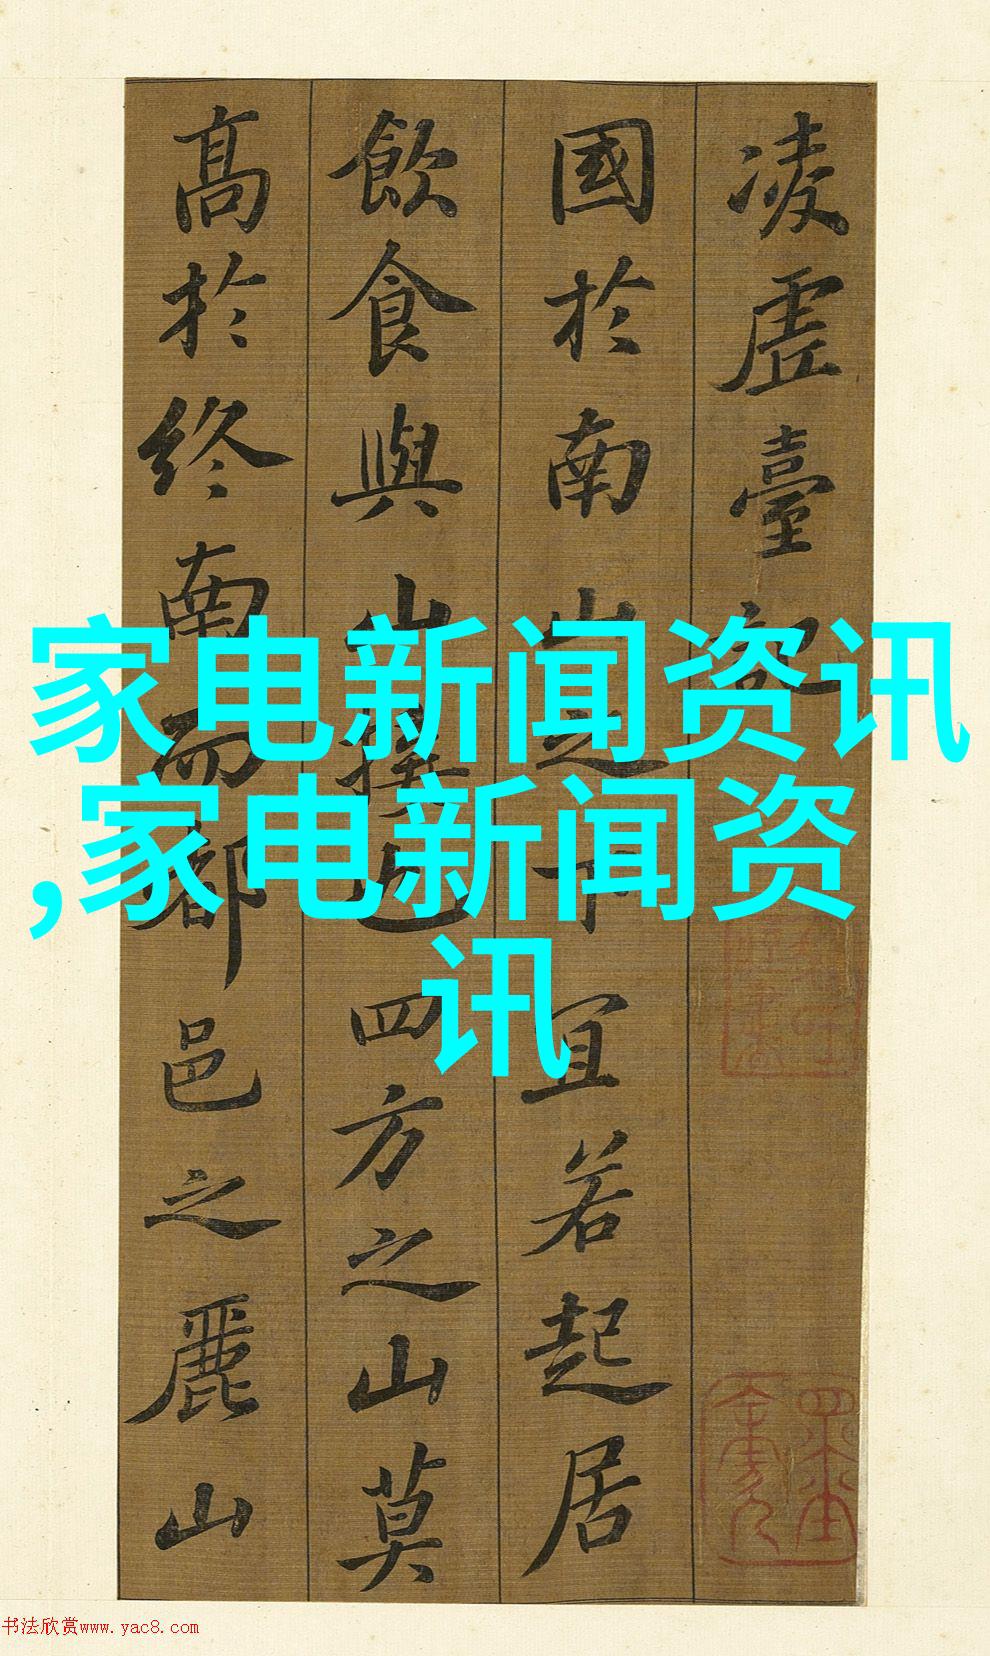 凌虛臺記
國於南山之下宜若起居
飲食與山接也四方之山莫
高於終南而都邑之麗山
家电新闻资讯
,家电新闻资
讯
书法欣赏www.yac8.com